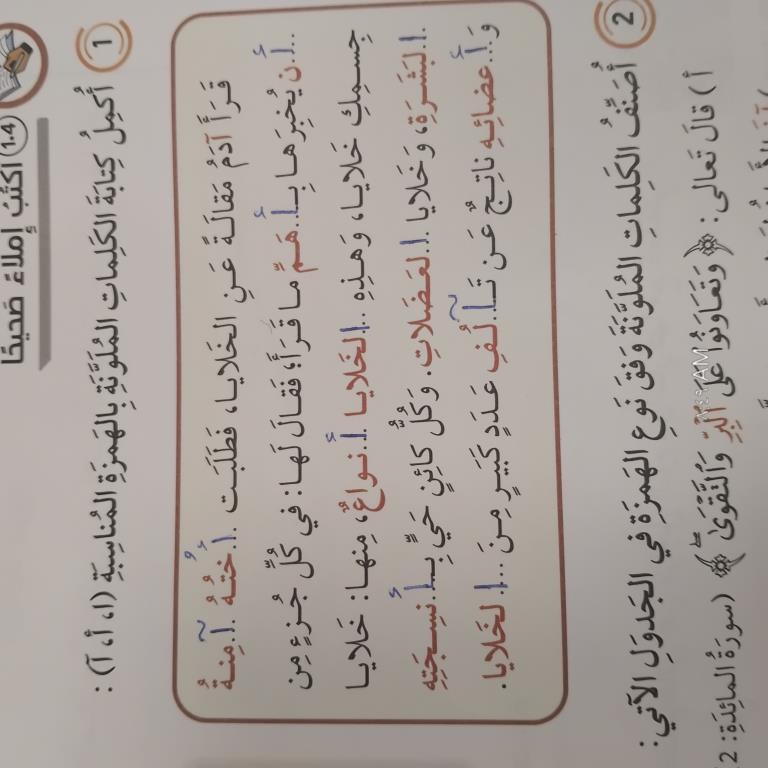 (1.4) أَكْتُبُ إِمْلاءً صَحيحًا
1 أُكْمِلُ كِتابَةَ الكَلِماتِ المُلَوَّنَةِ بِالهَمْزَةِ المُناسِبَةِ (ا، أ، آ) :
قَرَأَ آدَمُ مَقالَةً عَنِ الخَلايا، فَطَلَبَت ..أُ.خْتُهُ .آ.مِنةُ
..أَ.ن يُخْبِرَها بِـ.أَ.هَمِّ ما قَرَأَ؛ فَقالَ لَها: في كُلِّ جُزءٍ مِن
جِسمِكِ خَلايا، وَهَذِهِ ..ا.لخَلايا .أَ..نواعٌ، مِنها: خَلايا
.ا.لبَشَرَةِ، وَخَلايا .ا.لعَضَلاتِ. وَكُلُّ كائِنٍ حَيٍّ بِـ.أَ.نسِجَتِهِ
وَ..أَ.عضائِهِ ناتِجٌ عَن تَـ.آ.لُفِ عَدَدٍ كَبيرٍ مِنَ ..ا.لخَلايا.
2 أُصَنِّفُ الكَلِماتِ المُلَوَّنَةَ وَفقَ نَوعِ الهَمزَةِ في الجَدوَلِ الآتي:
أ ) قالَ تَعالى: ﴿ وَتَعَاوَنُوا عَلَى الْبِرِّ وَالتَّقْوَىٰ ﴾ (سورَةُ المائِدَةِ: 2